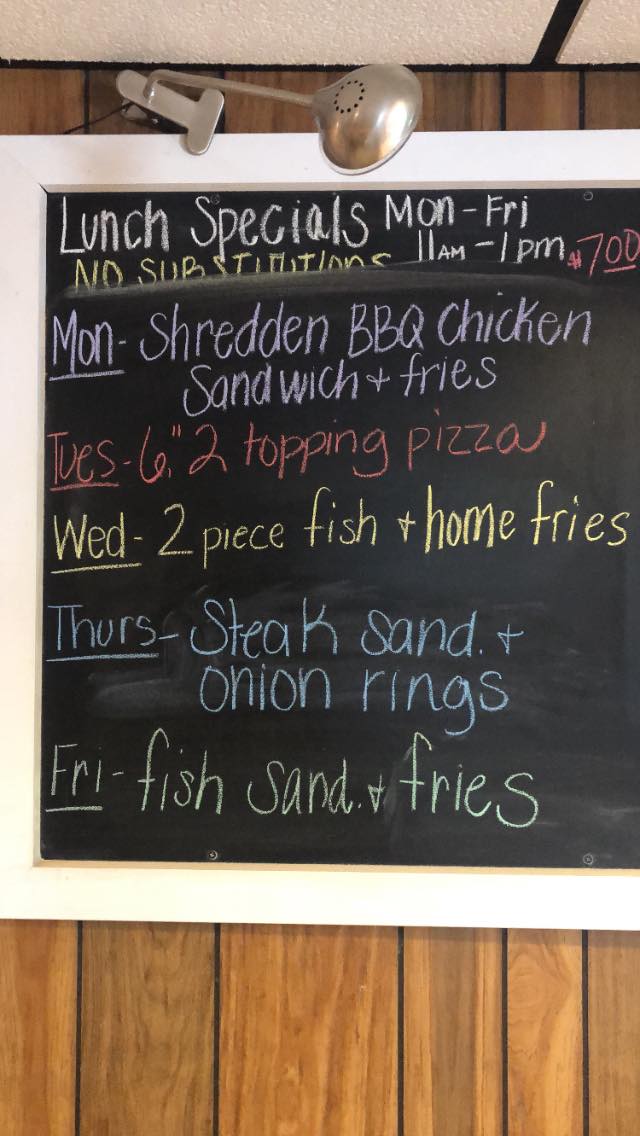 Lunch Specials Mon-Fri
11AM-1pm $7.00
NO SUBSTITUTIONS
Mon- Shredden BBQ Chicken
Sandwich + fries
Tues- 6" 2 topping pizza
Wed- 2 piece fish + home fries
Thurs- Steak Sand. +
onion rings
Fri- fish Sand. + fries